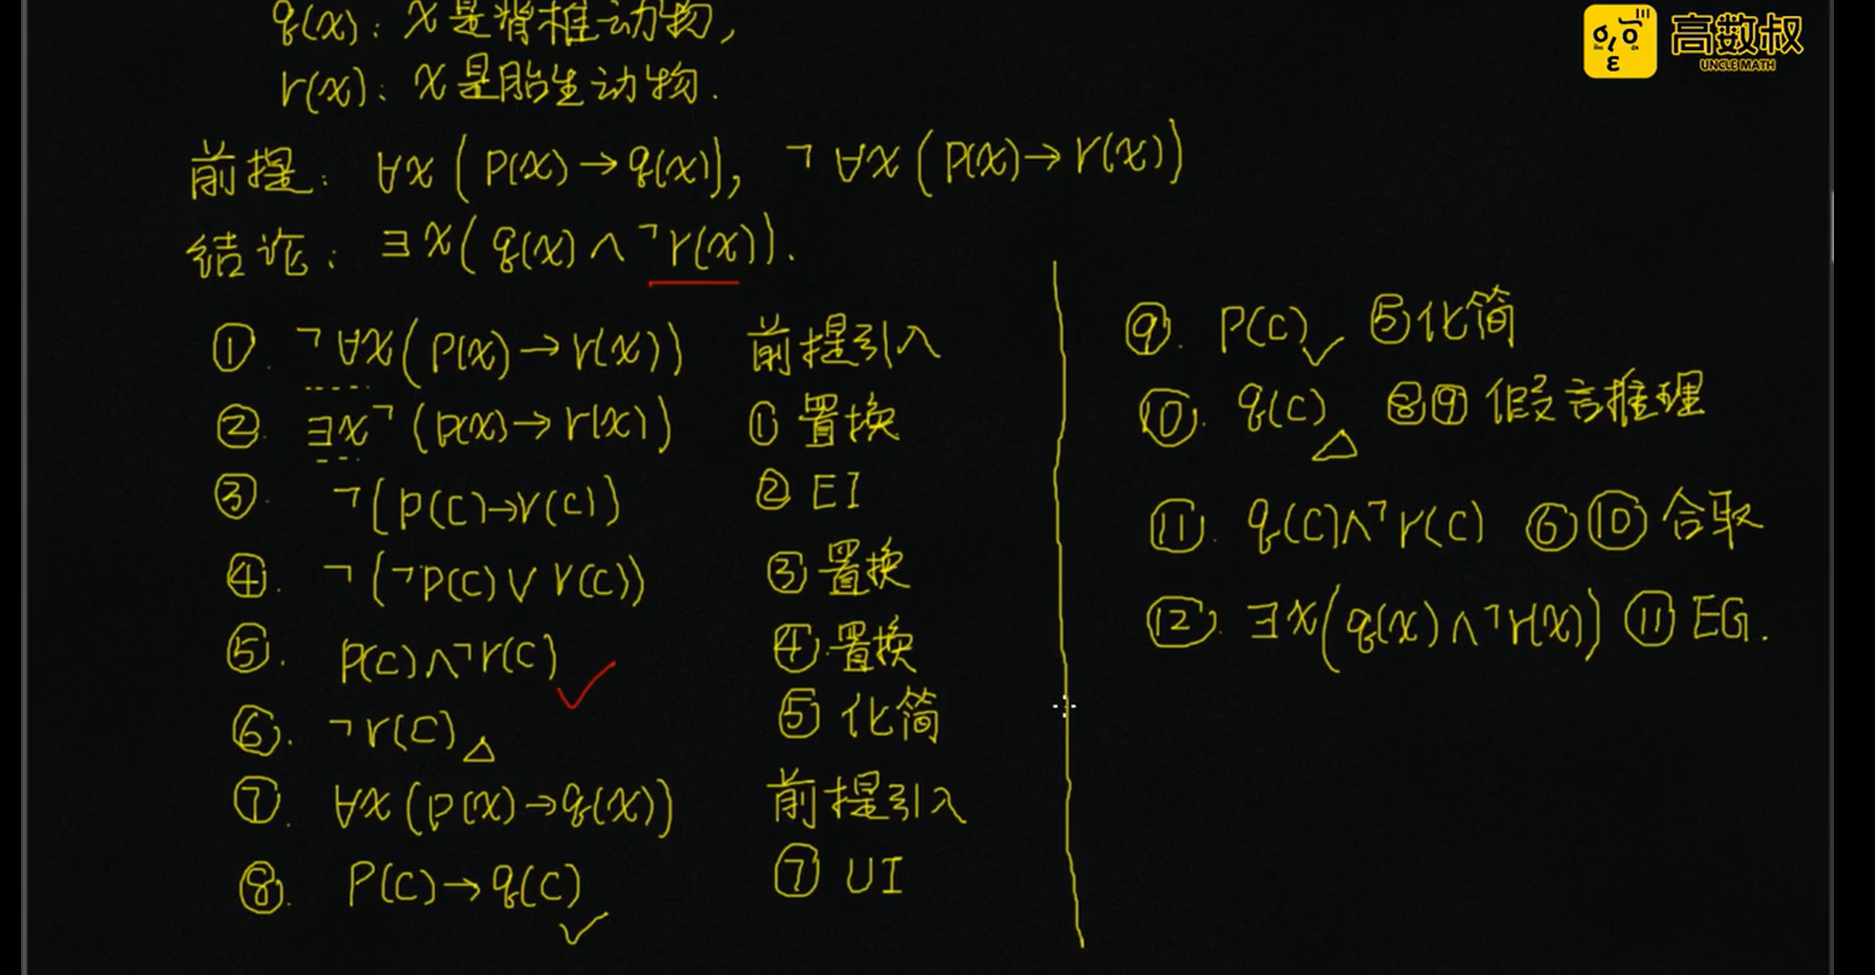 q(x): x是脊椎动物,
r(x): x是胎生动物.
高数叔
UNCLE MATH
前提: ∀x(p(x)→q(x)), ¬∀x(p(x)→r(x))
结论: ∃x(q(x)∧¬r(x)).
① ¬∀x(p(x)→r(x)) 前提引入
② ∃x¬(p(x)→r(x)) ①置换
③ ¬(p(c)→r(c)) ② EI
④. ¬(¬p(c)∨r(c)) ③置换
⑤. p(c)∧¬r(c) ④.置换
⑥. ¬r(c) ⑤化简
⑦. ∀x(p(x)→q(x)) 前提引入
⑧. p(c)→q(c) ⑦ UI
⑨. p(c) ⑤化简
⑩. q(c) ⑧⑨假言推理
⑪. q(c)∧¬r(c) ⑥⑩合取
⑫. ∃x(q(x)∧¬r(x)) ⑪ EG.